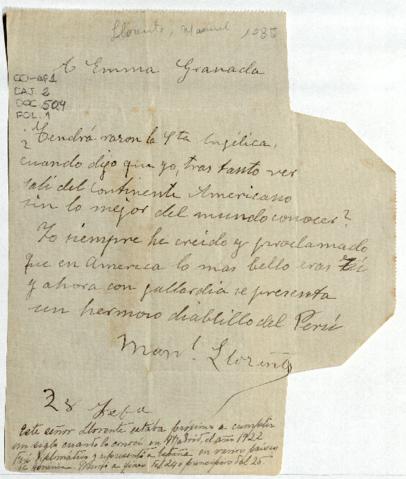 Llorente, Manuel 1985
A Emma Granada
CCI-AP1
CAJ. 2
DOC. 509
FOL. 1
¿Tendrá razon la Sta Angélica,
cuando dijo que yo, tras tanto ver
salí del Continente Americano
sin lo mejor del mundo conocer?
Yo siempre he creido y proclamado
que en America lo mas bello eras tú
y ahora con gallardia se presenta
un hermoso diablillo del Perú
Man.l Llorente
28
Este señor Llorente estaba proximo a cumplir
un siglo cuando lo conocí en Madrid, el año 1922
Fué diplomático y representó a España en varios paises
de America. Murió a